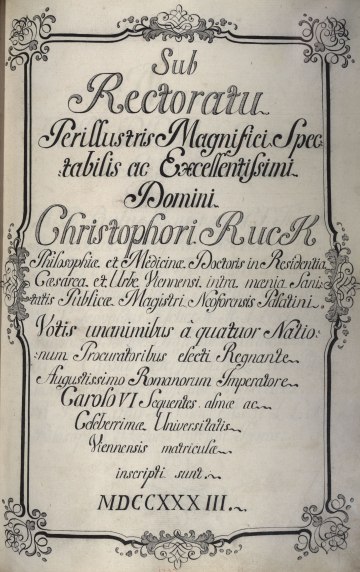 Sub
Rectoratu
Perillustris Magnifici Spec-
tabilis ac Excellentissimi
Domini
Christophori Ruck
Philosophiæ et Medicinæ Doctoris in Residentia
Cæsarea et Urbe Viennensi intra mœnia Sani-
tatis Publicæ Magistri Neoforensis Palatini
Votis unanimibus à quatuor Natio-
num Procuratoribus electi Regnante
Augustissimo Romanorum Imperatore
Carolo VI Sequentes almæ ac
Celeberrimæ Universitatis
Viennensis matriculæ
inscripti sunt
MDCCXXXIII.